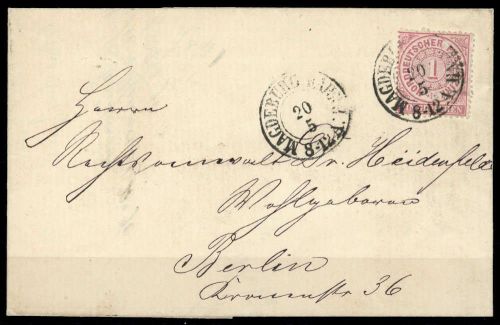 NORDDEUTSCHER
1
MAGDEBURG BAHNH.
20
5
8-12 V.
MAGDEBURG BAHNH.
20
5
8-12 V.
Herrn
Rechtsanwalt Dr. Heidenfeld
Wohlgeboren
Berlin
Kronenstr 36